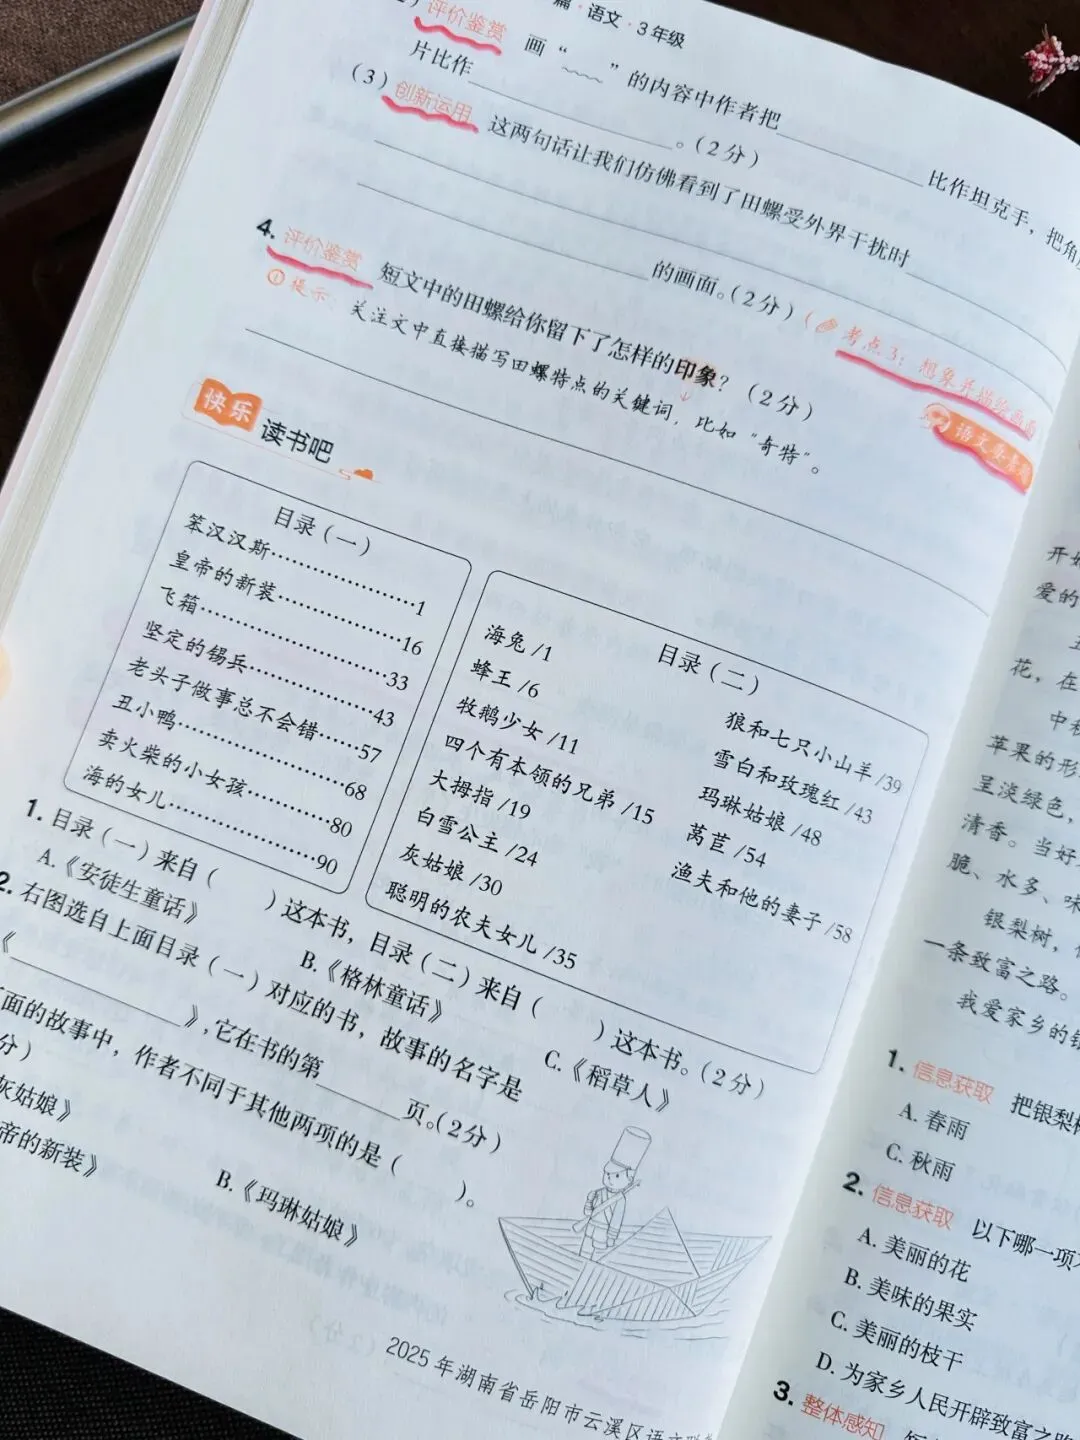 篇·语文·3年级
评价鉴赏 画“﹏﹏”的内容中作者把____比作坦克手，把角
片比作____。（2分）
（3）创新运用 这两句话让我们仿佛看到了田螺受外界干扰时____
____的画面。（2分）（考点3：想象并描绘画面
4. 评价鉴赏 短文中的田螺给你留下了怎样的印象？（2分）
①提示 关注文中直接描写田螺特点的关键词，比如“奇特”。
快乐读书吧
目录（一）
笨汉汉斯……1
皇帝的新装……16
飞箱……33
坚定的锡兵……43
老头子做事总不会错……57
丑小鸭……68
卖火柴的小女孩……80
海的女儿……90
目录（二）
海兔/1
蜂王/6
牧鹅少女/11
四个有本领的兄弟/15
大拇指/19
白雪公主/24
灰姑娘/30
聪明的农夫女儿/35
狼和七只小山羊/39
雪白和玫瑰红/43
玛琳姑娘/48
莴苣/54
渔夫和他的妻子/58
1. 目录（一）来自（ ）这本书，目录（二）来自（ ）这本书。（2分）
A.《安徒生童话》 B.《格林童话》 C.《稻草人》
2. 右图选自上面目录（一）对应的书，故事的名字是
《____》，它在书的第____页。（2分）
面的故事中，作者不同于其他两项的是（ ）。
分）
灰姑娘》 B.《玛琳姑娘》
帝的新装》
2025年湖南省岳阳市云溪区语文
开始
爱的
花，在
中秋
苹果的形
呈淡绿色，
清香。当好
脆、水多、味
银梨树，
一条致富之路。
我爱家乡的银
1. 信息获取 把银梨
A. 春雨
C. 秋雨
2. 信息获取 以下哪一项
A. 美丽的花
B. 美味的果实
C. 美丽的枝干
D. 为家乡人民开辟致富之路
3. 整体感知